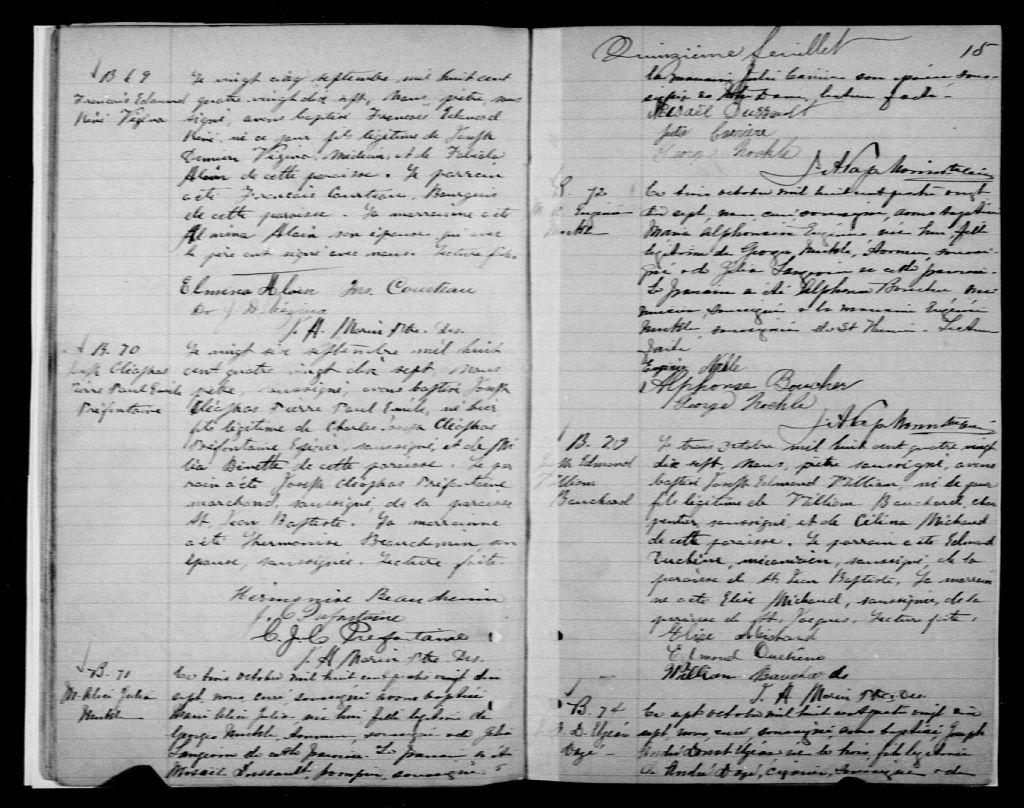 B 69
François Edmond
René Vézina
Le vingt cinq septembre mil huit cent
quatre vingt dix sept, nous, prêtre, sous
signé, avons baptisé François Edmond
René né ce jour fils légitime de Joseph
Damien Vézina Médecin, et de Fabiola
Alain de cette paroisse. Le parrain
a été François Courteau, Bourgeois
de cette paroisse. La marraine a été
Elmina Alain son épouse, qui avec
le père ont signé avec nous. Lecture faite.
Elmina Alain Frs. Courteau
Dr J. D. Vézina
J. A. Morin Ptre. Des.
B. 70
Joseph Cléophas
Pierre Paul Emile
Préfontaine
Le vingt six septembre mil huit
cent quatre vingt dix sept, nous
prêtre, soussigné, avons baptisé Joseph
Cléophas Pierre Paul Emile, né hier
fils légitime de Charles Joseph Cléophas
Préfontaine Epicier, soussigné, et de
Binette de cette paroisse. Le par
rain a été Joseph Cléophas Préfontaine
marchand, soussigné, de la paroisse
St. Jean Baptiste. La marraine
a été Hermonise Beauchemin son
épouse, soussignée. Lecture faite.
Hermonise Beauchemin
J. C. Préfontaine
C. J. C. Préfontaine
J. A Morin Ptre Des.
B. 71
M. Alice Julia
Le trois octobre mil huit cent quatre vingt dix
sept nous curé soussigné avons baptisé
Marie Alice Julia, née hier fille légitime de
Georges soussigné et de
de cette paroisse. Le parrain a été
Misaël Dussault, pompier, soussigné
Quinzième feuillet 15
la marraine Julie Carrière son épouse sous-
signée de Notre Dame, lecture faite
Misaël Dussault
Julie Carrière
George Nockle
B 72
M. A. Eugénie
Le trois octobre mil huit cent quatre vingt
dix sept, nous curé soussigné, avons baptisé
Marie Alphonsine Eugénie née hier fille
légitime de George soussi-
gné et de de cette paroisse.
Le parrain a été Alphonse Boucher
soussigné et la marraine Eugénie
soussignée de St Henri. Lecture
faite
Eugénie Nokle
Alphonse Boucher
George Nockle
B. 73
Edmond
William
Bouchard
Le trois octobre mil huit cent quatre vingt
dix sept, nous, prêtre soussigné, avons
baptisé Joseph Edmond William, né ce jour
fils légitime de William Bouchard, char
pentier, soussigné, et de Célina Michaud
de cette paroisse. Le parrain a été Edmond
Duchêne, mécanicien, soussigné, de la
paroisse de St. Jean Baptiste. La marrai
ne a été Elise Michaud, soussignée, de la
paroisse de St. Jacques. Lecture faite.
Elise Michaud
Edmond Duchene
William Bouchard
J. A. Morin Ptre. Des
B. 74
J. D. Ulysse
Le sept octobre mil huit cent quatre vingt dix
sept nous, curé, soussigné, avons baptisé Joseph
André Donat né le trois, fils légitime
de André soussigné et de